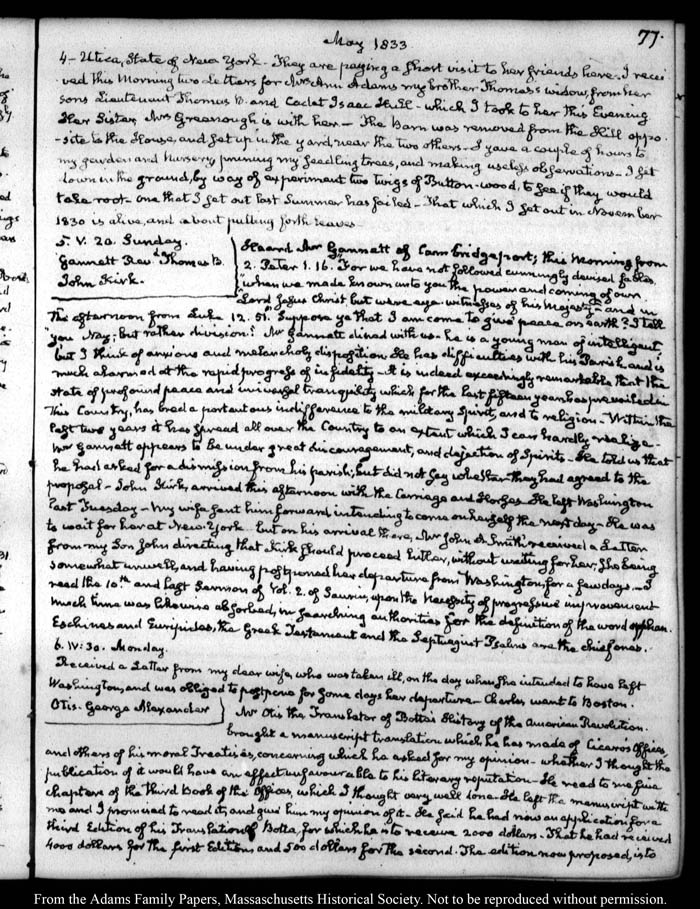 May 1833
77.
4 - Utica, State of New York - They are paying a short visit to her friends here. I recei
ved this Morning two Letters for Mrs Ann Adams my brother Thomas's widow, from her
sons Lieutenant Thomas B. and Cadet Isaac Hull - which I took to her this Evening
Her Sister Mrs Greenough is with her - The Barn was removed from the Hill oppo-
-site to the House, and set up in the yard, near the two others - I gave a couple of hours to
my garden and Nursery, pruning my seedling trees, and making useless observations - I set
down in the ground, by way of experiment two twigs of Button-wood, to see if they would
take root - one that I set out last Summer has failed - That which I set out in November
1830 is alive, and about putting forth leaves
5. V. 20. Sunday.
Gannett Revd Thomas B.
John Kirk.
Heard Mr Gannett of Cambridgeport; this Morning from
2. Peter 1. 16. "For we have not followed cunningly devised fables,
"when we made known unto you the power and coming of our
"Lord Jesus Christ, but were eye-witnesses of his Majesty" and in
The afternoon from Luke 12. 51. Suppose ye that I am come to give peace on earth? I tell
"you Nay; but rather division." Mr Gannett dined with us - he is a young man of intelligent
but I think of anxious and melancholy disposition. He has difficulties with his Parish, and is
much alarmed at the rapid progress of infidelity - It is indeed exceedingly remarkable that the
state of profound peace and universal tranquility which for the last fifteen years has prevailed in
This Country, has bred a portentous indifference to the military Spirit, and to religion - Within the
last two years it has spread all over the Country to an extent which I can hardly realize -
Mr Gannett appears to be under great discouragement, and dejection of Spirits - He told us that
he had asked for a dismission from his parish; but did not say whether they had agreed to the
proposal - John Kirk, arrived this afternoon with the Carriage and Horses - He left Washington
last Tuesday - My wife sent him forward intending to come on herself the next day - He was
to wait for her at New-York but on his arrival there, Mr John A. Smith received a Letter
from my Son John directing that Kirk should proceed hither, without waiting for her, She being
somewhat unwell, and having postponed her departure from Washington, for a few days - I
read the 10th and last Sermon of Vol. 2. of Saurin, upon the Necessity of progressive improvement
much time was likewise absorbed, in searching authorities for the definition of the word orphan.
Eschines and Euripides, the Greek Testament and the Septuagint Psalms are the chief ones.
6. IV: 30. Monday.
Received a Letter from my dear wife, who was taken ill, on the day when she intended to have left
Washington, and was obliged to postpone for some days her departure - Charles went to Boston.
Otis - George Alexander
Mr Otis the Translator of Botta's History of the American Revolution.
brought a manuscript translation which he has made of Cicero's Offices,
and others of his moral Treatises, concerning which he asked for my opinion - whether I thought the
publication of it would have an effect unfavourable to his literary reputation - He read to me five
chapters of the third Book of the Offices, which I thought very well done - He left the manuscript with
me and I promised to read it, and give him my opinion of it - He said he had now an application for a
third Edition of his Translation of Botta, for which he is to receive 2000 dollars - That he had received
4000 dollars for the first Edition and 500 dollars for the second. The edition now proposed, is to
From the Adams Family Papers, Massachusetts Historical Society. Not to be reproduced without permission.